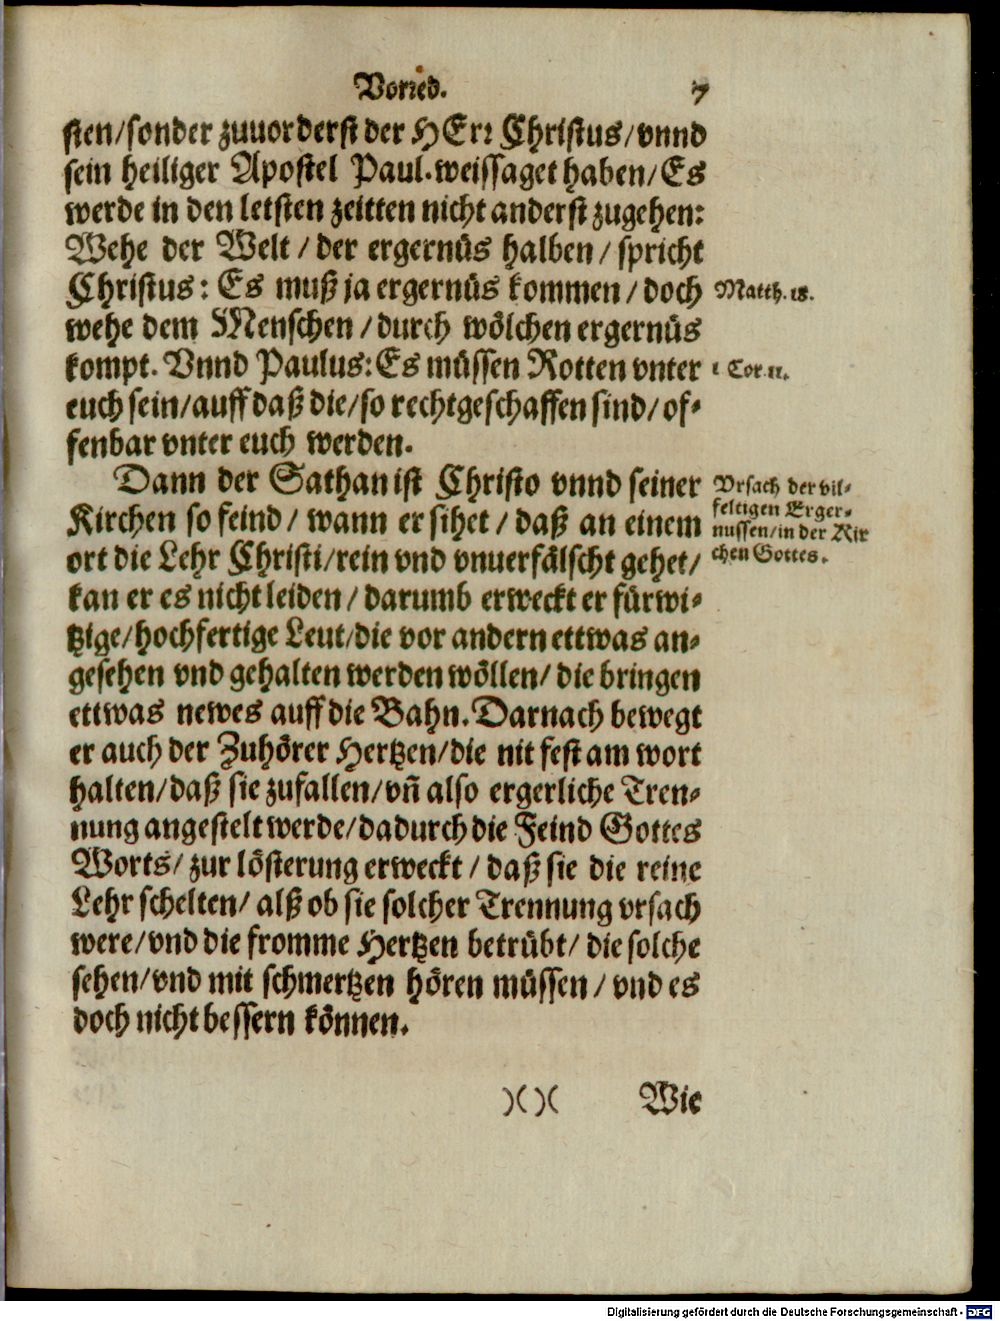 Vorred. 7
sten/sonder zuuorderst der HErr Christus/vnnd
sein heiliger Apostel Paul. weissaget haben/Es
werde in den letsten zeitten nicht anderst zugehen:
Wehe der Welt / der ergernüs halben / spricht
Christus: Es muß ja ergernüs kommen / doch
Matth. 18.
wehe dem Menschen / durch wölchen ergernüs
kompt. Vnnd Paulus: Es müssen Rotten vnter
1 Cor 11.
euch sein/auff daß die/so rechtgeschaffen sind/of-
fenbar vnter euch werden.
Dann der Sathan ist Christo vnnd seiner
Kirchen so feind / wann er sihet / daß an einem
ort die Lehr Christi/rein vnd vnuerfälscht gehet/
Vrsach der vil-
feltigen Erger-
nussen/in der Kir
chen Gottes.
kan er es nicht leiden / darumb erweckt er fürwi-
tzige/hochfertige Leut/die vor andern ettwas an-
gesehen vnd gehalten werden wöllen/ die bringen
ettwas newes auff die Bahn. Darnach bewegt
er auch der Zuhörer Hertzen/die nit fest am wort
halten/daß sie zufallen/vñ also ergerliche Tren-
nung angestelt werde/dadurch die Feind Gottes
Worts/ zur lösterung erweckt / daß sie die reine
Lehr schelten/ alß ob sie solcher Trennung vrsach
were/vnd die fromme Hertzen betrübt/ die solche
sehen/vnd mit schmertzen hören müssen / vnd es
doch nicht bessern können.
)( )( Wie
Digitalisierung gefördert durch die Deutsche Forschungsgemeinschaft - DFG